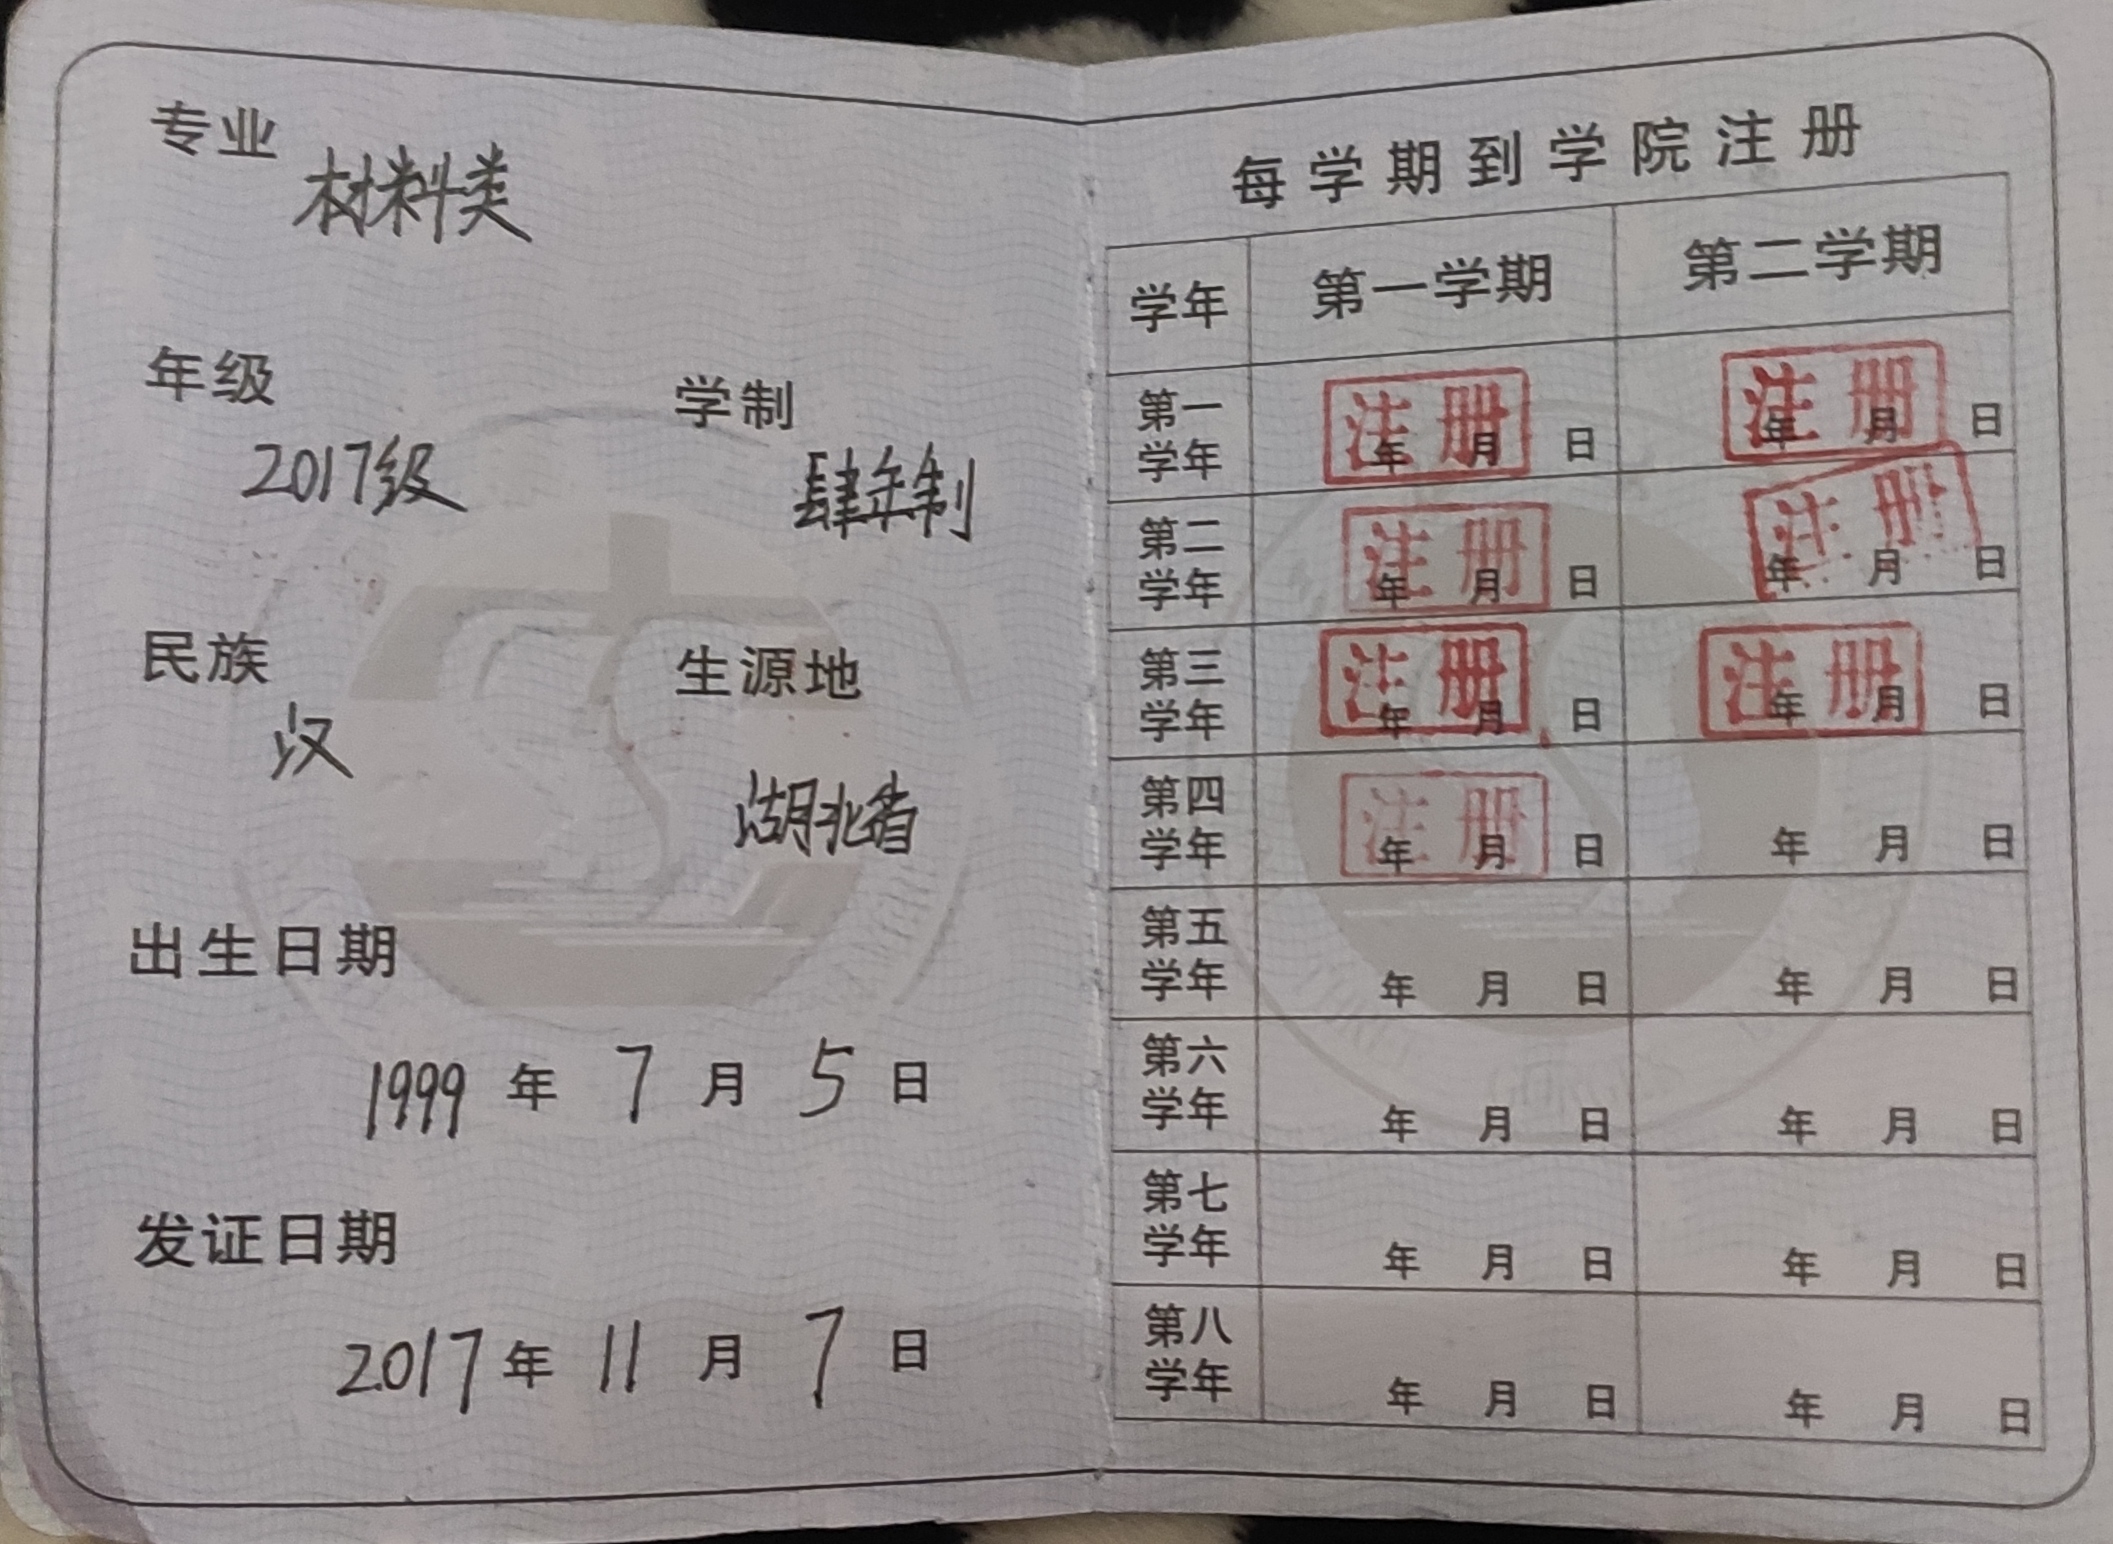 专业
材料类
年级
学制
2017级
肆年制
民族
生源地
汉
湖北省
出生日期
1999年7月5日
发证日期
2017年11月7日
每学期到学院注册
学年 第一学期 第二学期
第一学年 注册 年 月 日 注册 年 月 日
第二学年 注册 年 月 日 注册 年 月 日
第三学年 注册 年 月 日 注册 年 月 日
第四学年 注册 年 月 日 年 月 日
第五学年 年 月 日 年 月 日
第六学年 年 月 日 年 月 日
第七学年 年 月 日 年 月 日
第八学年 年 月 日 年 月 日